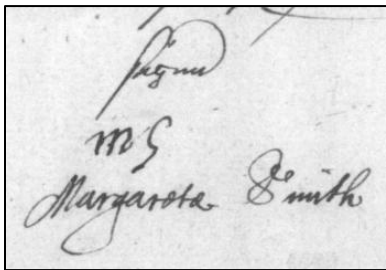 signu
MS
Margaretæ Smith